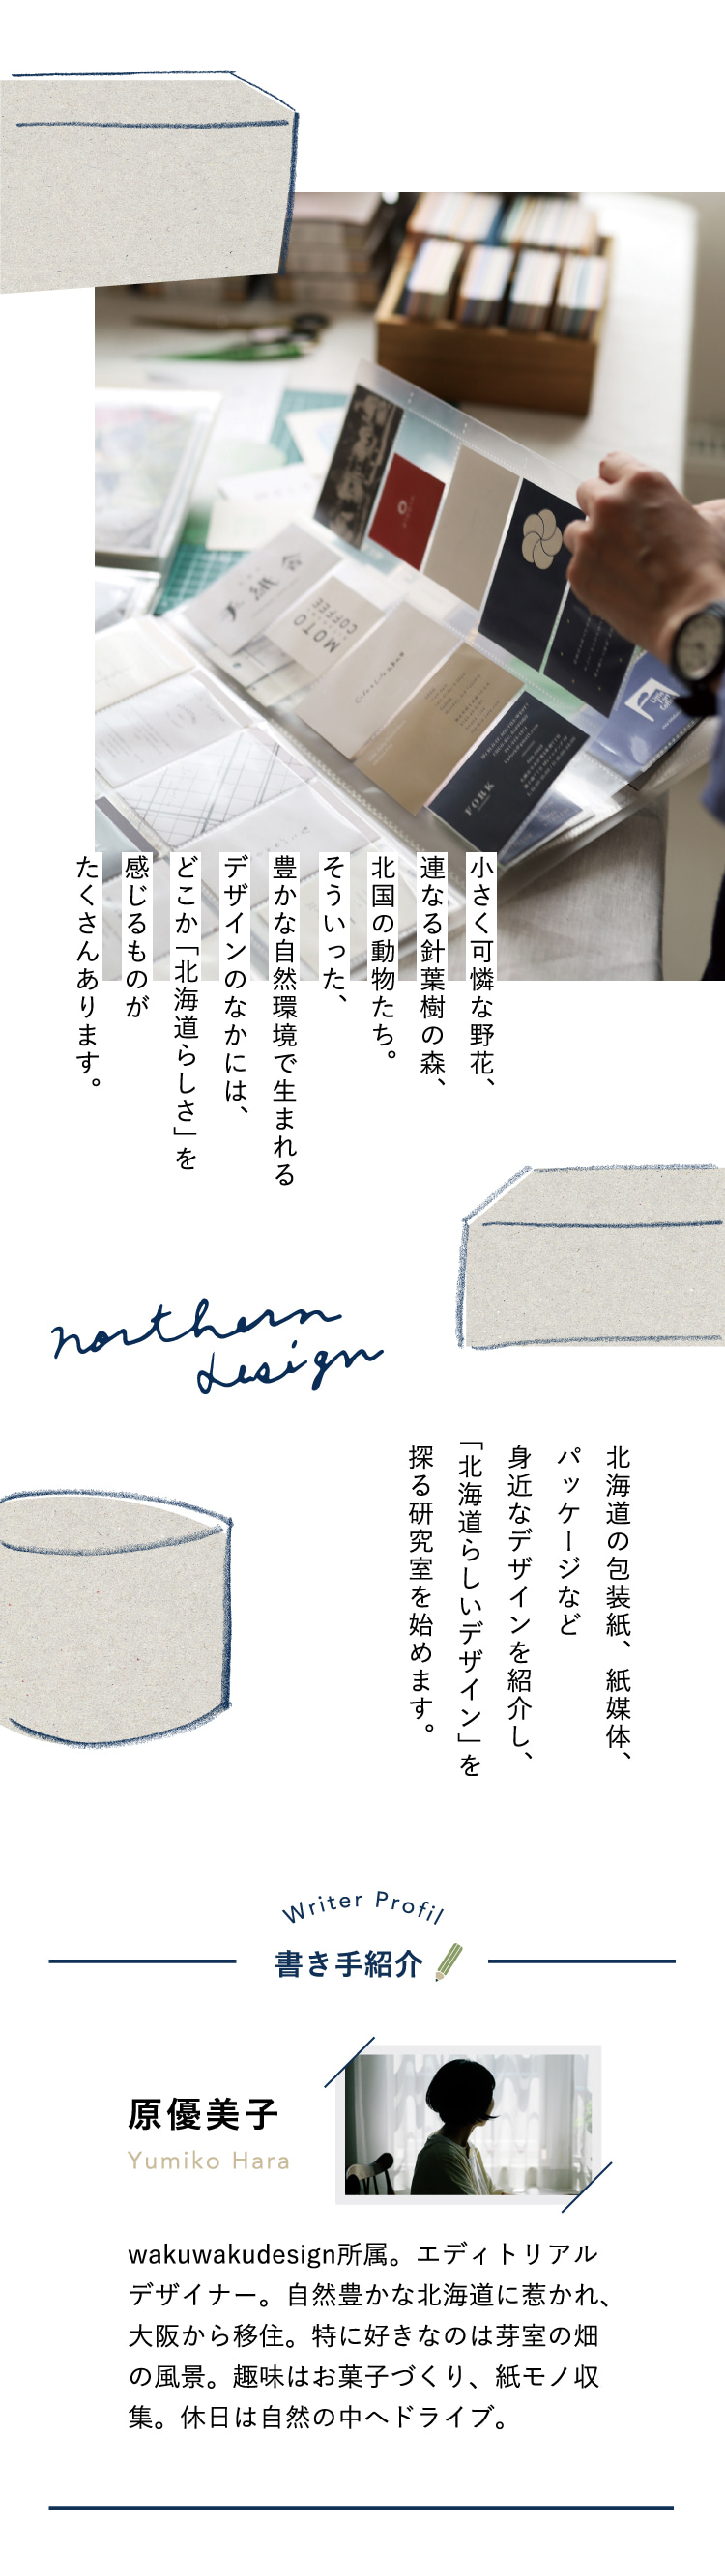 手紙舎
MOTO
COFFEE
FOBK
小さく可憐な野花、
連なる針葉樹の森、
北国の動物たち。
そういった、
豊かな自然環境で生まれる
デザインのなかには、
どこか「北海道らしさ」を
感じるものが
たくさんあります。
northern
design
北海道の包装紙、紙媒体、
パッケージなど
身近なデザインを紹介し、
「北海道らしいデザイン」を
探る研究室を始めます。
Writer Profil
書き手紹介
原優美子
Yumiko Hara
wakuwakudesign所属。エディトリアル
デザイナー。自然豊かな北海道に惹かれ、
大阪から移住。特に好きなのは芽室の畑
の風景。趣味はお菓子づくり、紙モノ収
集。休日は自然の中へドライブ。